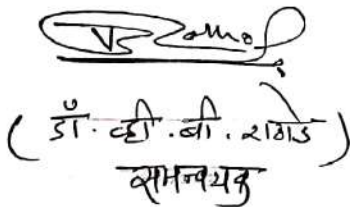 ( डॉ. व्ही. बी. राठोड )
समन्वयक